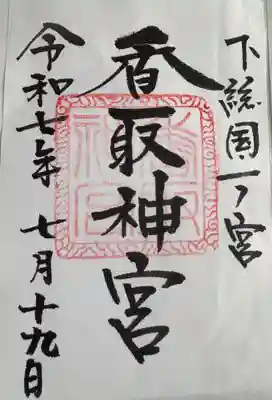 下総国一ノ宮
香取神宮
令和七年 七月十九日